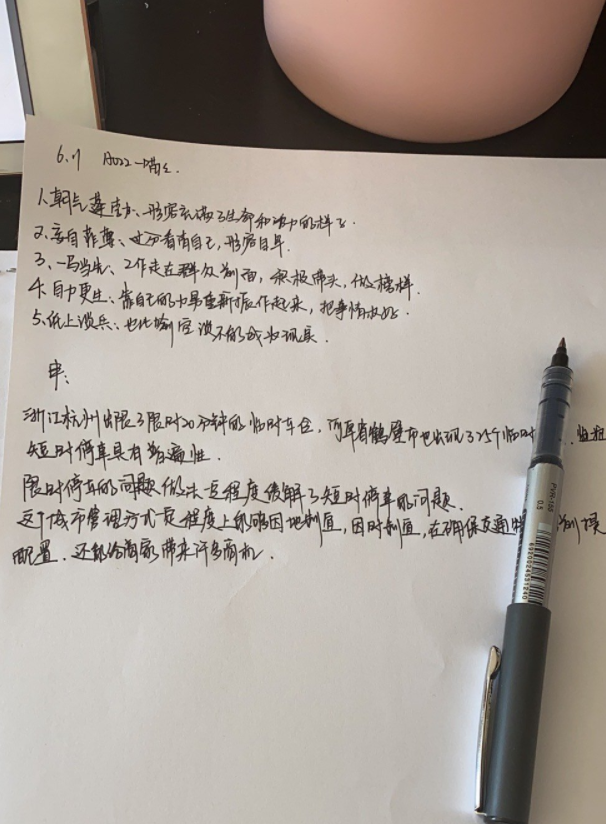 6.
1.朝气蓬勃、形容充满了生命和活力的样子.
2.妄自菲薄、过分看轻自己,形容自卑.
3、一马当先、工作走在群众前面,积极带头,做榜样.
4.自力更生、靠自己的力量重新振作起来,把事情做好.
5、纸上谈兵、也比喻空谈不能成为现实.
申:
浙江杭州出现了限时20分钟的临时车位,河南省鹤壁市也出现了25个临时
短时停车具有普遍性.
限时停车的问题做法 程度缓解了短时停车的问题.
这个城市管理方式 程度上能够因地制宜,因时制宜,在确保交通
配置.还能给商家带来许多商机.
PVR-150
0.5
4970024651240